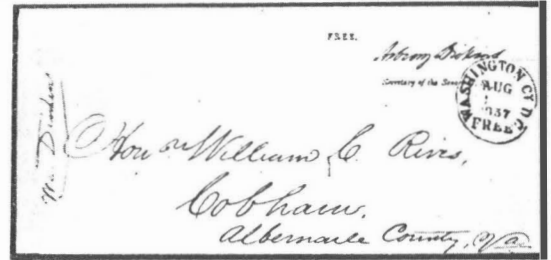 FREE.
Asbury Dickins
Secretary of the Senate
WASHINGTON CY D.C.
AUG
1
1837
FREE
Hon William C. Rives,
Cobham.
Albemarle County, Va
Dickins